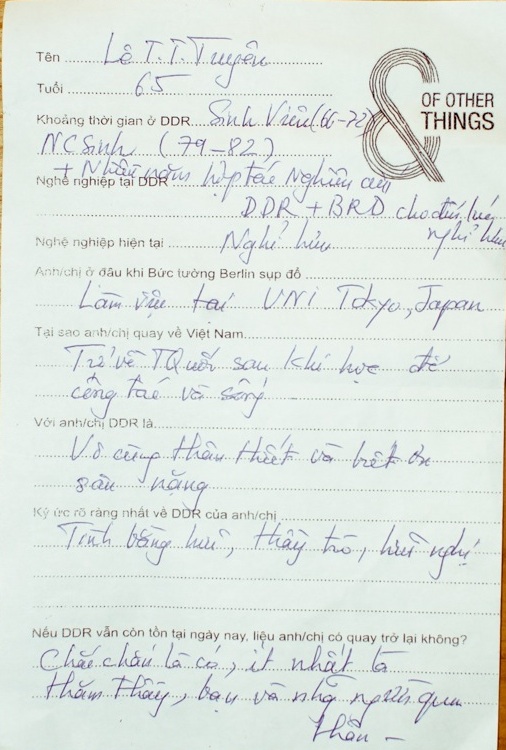 Tên Lê T.T. Tuyên
Tuổi 65
& OF OTHER
THINGS
Khoảng thời gian ở DDR Sinh Viên (66-72)
NCSinh (79-82)
+ Nhiều năm hợp tác nghiên cứu
Nghề nghiệp tại DDR
DDR + BRD cho đến lúc
nghỉ hưu
Nghề nghiệp hiện tại Nghỉ hưu
Anh/chị ở đâu khi Bức tường Berlin sụp đổ
Làm việc tại UNi Tokyo, Japan
Tại sao anh/chị quay về Việt Nam
Trở về TQuốc sau khi học để
công tác và sống
Với anh/chị DDR là
Vô cùng thân thiết và biết ơn
sâu nặng
Ký ức rõ ràng nhất về DDR của anh/chị
Tình bằng hữu, thầy trò, hữu nghị
Nếu DDR vẫn còn tồn tại ngày nay, liệu anh/chị có quay trở lại không?
Chắc chắn là có, ít nhất là
thăm thầy, bạn và những người quen
thân -